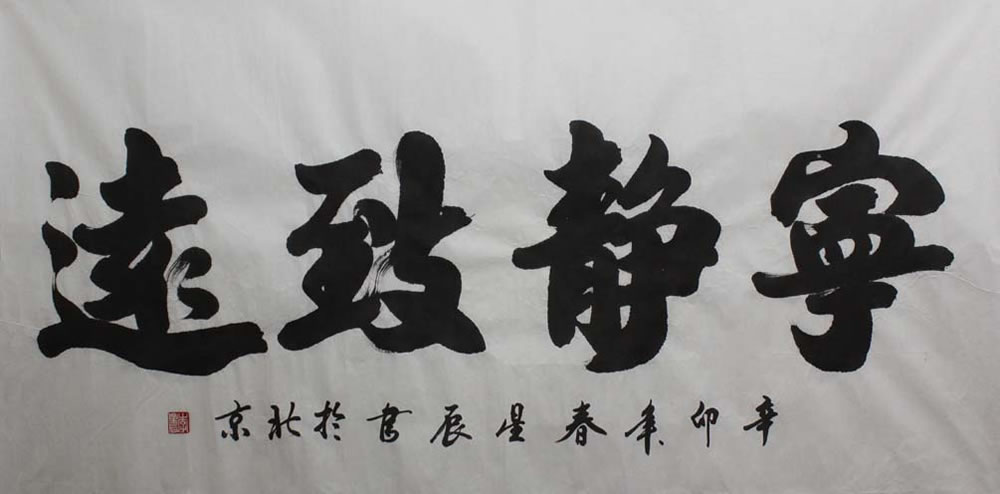 寧静致遠
辛卯年春星辰書於北京